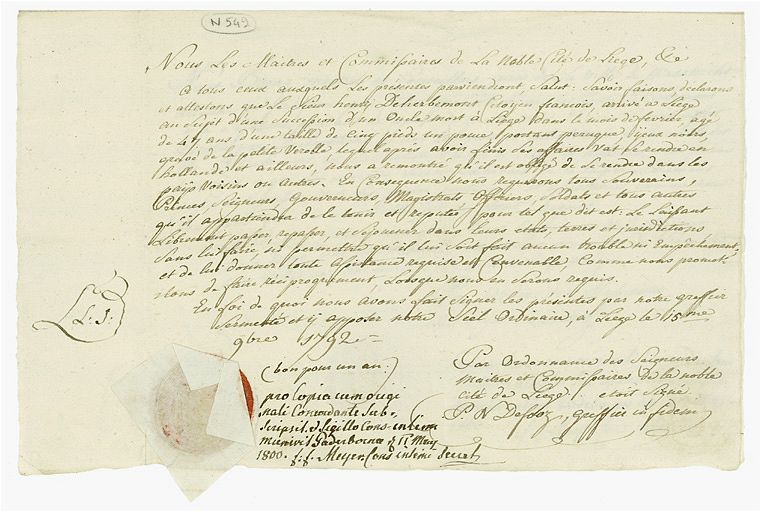 N 549
Nous Les Maitres et Commissaires de La Noble Cité de Liege, &c
a tous ceux auxquels Les presentes parviendront, Salut: Savoir faisons, declarons
et attestons que Le Sieur henry Deherbemont Citoyen francois, arrivé a Liege
au Sujet d'une Succession d'un Oncle mort à Liege dans le mois de fevrier, agé
de 47 ans d'une taille de Cinq pieds un pouce, portant peruque, yeux noirs,
gravé de la petite Verolle, lequel après avoir finis Ses affaires Vat Se rendre en
hollande et ailleurs, nous a remontré qu'il est obligé de Se rendre dans les
païs Voisins ou Autres. En Consequence nous requerons tous Souverains,
Princes Seigneurs, Gouverneurs, Magistrats, Officiers, Soldats et tous autres
qu'il appartiendra de le tenir et reputer pour tel que dit est: Le Laissant
Librement passer, repasser, et Sejourner dans Leurs etats, terres et jurisdictions
Sans lui faire, ni permettre qu'il lui Soit fait aucun trouble ni Empechement,
et de lui donner toute assistance requise et Convenable, Comme nous promet-
tons de faire reciproquement, Lorsque nous en Serons requis.
En foi de quoi nous avons fait Signer les presentes par notre greffier
Sermenté et y apposer notre Scel Ordinaire, à Liege le 15me
9bre 1792
L: S:
(bon pour un an:)
pro Copia cum origi
nali Concordante Sub-
scripsit & Sigillo Cons-
munivit Paderbornæ 11 May
1800. Meyer Cons
Par Ordonnance des Seigneurs
Maitres et Commissaires de la noble
cité de Liege: etoit Signé
P. N. greffier in fidem